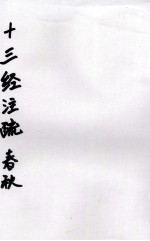 十三经注疏 春秋